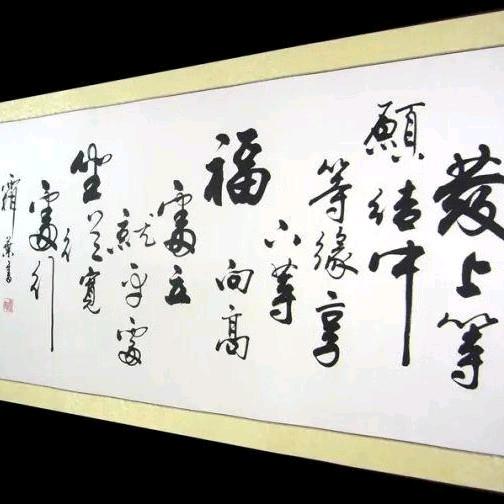 發上等
願結中
等緣享
下等
福向高
處立
就平處
坐寬
處行
霜葉書